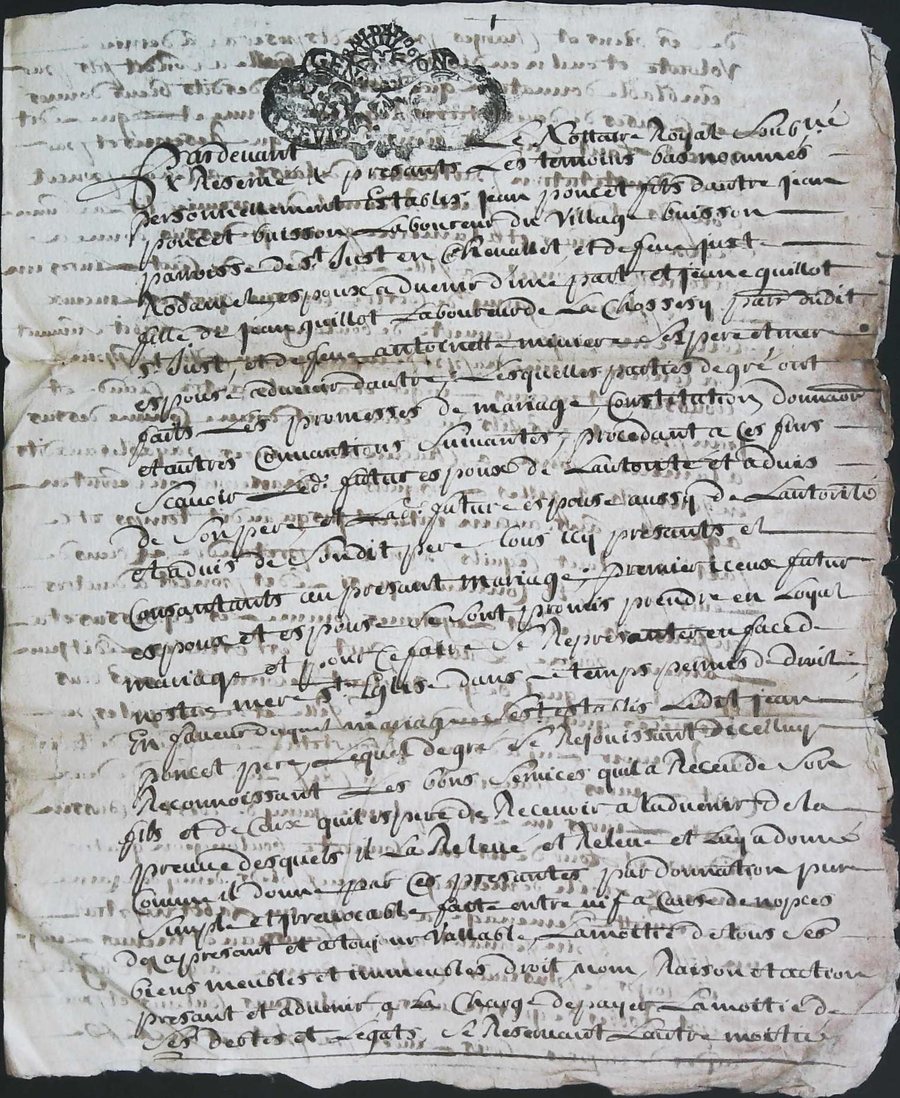 Pardevant Le Nottaire Royal Soubné
Et Reservé & presants Les temoins bas nommés
personnellement Establis jean poncet fils dautre jean
poncet buisson Laboureur du Village buisson
parroisse de st Just en Chevallet, et de feue just
Rodamel espoux advenir d'une part, et jeane quillot
fille de jean quillot Laboureur de La Chossery parr. dudit
st Just, et de feue antoinette meurere Ses pere et mere
espouse advenir dautre, Lesquelles parties de gré ont
faits Les promesses de mariage, Constitution donnaon
et autres Convantions Suivantes, procedant a Ces fins
Scavoir Led. futur espoux de Lautorité et advis
de Son pere, et Lad. future espouse aussy de Lautorité
et advis de Sondit pere tous icy presants et
Consantants au presant mariage; premier iceux futur
espoux et espouse Se Sont promis prendre en Loyal
mariage et pour Ce faire Se Représanter en face de
nostre mere ste Eglise dans Le temps permis de droit
En faveur duquel mariage est establis Ledit jean
poncet pere, Lequel de gré Se Rejouissant dicelluy
Reconnoissant Les bons Services quil a Receu de Son
fils et de Ceux quil espere de Recevoir a ladvenir, de la
preuve desquels il La Releve et Releve et Luy a donné
Comme il donne par Ces presantes par donnation pure
Simple et irrevocable faite entre vif a Cause de nopces
des a presant et a toujour Vallable, La moitié de tous Ses
biens meubles et immeubles droit nom, Raison et action
presant et advenir a La Charge de payer La moitié de
Ses debtes et Legats, Se Reservant Lautre moitié